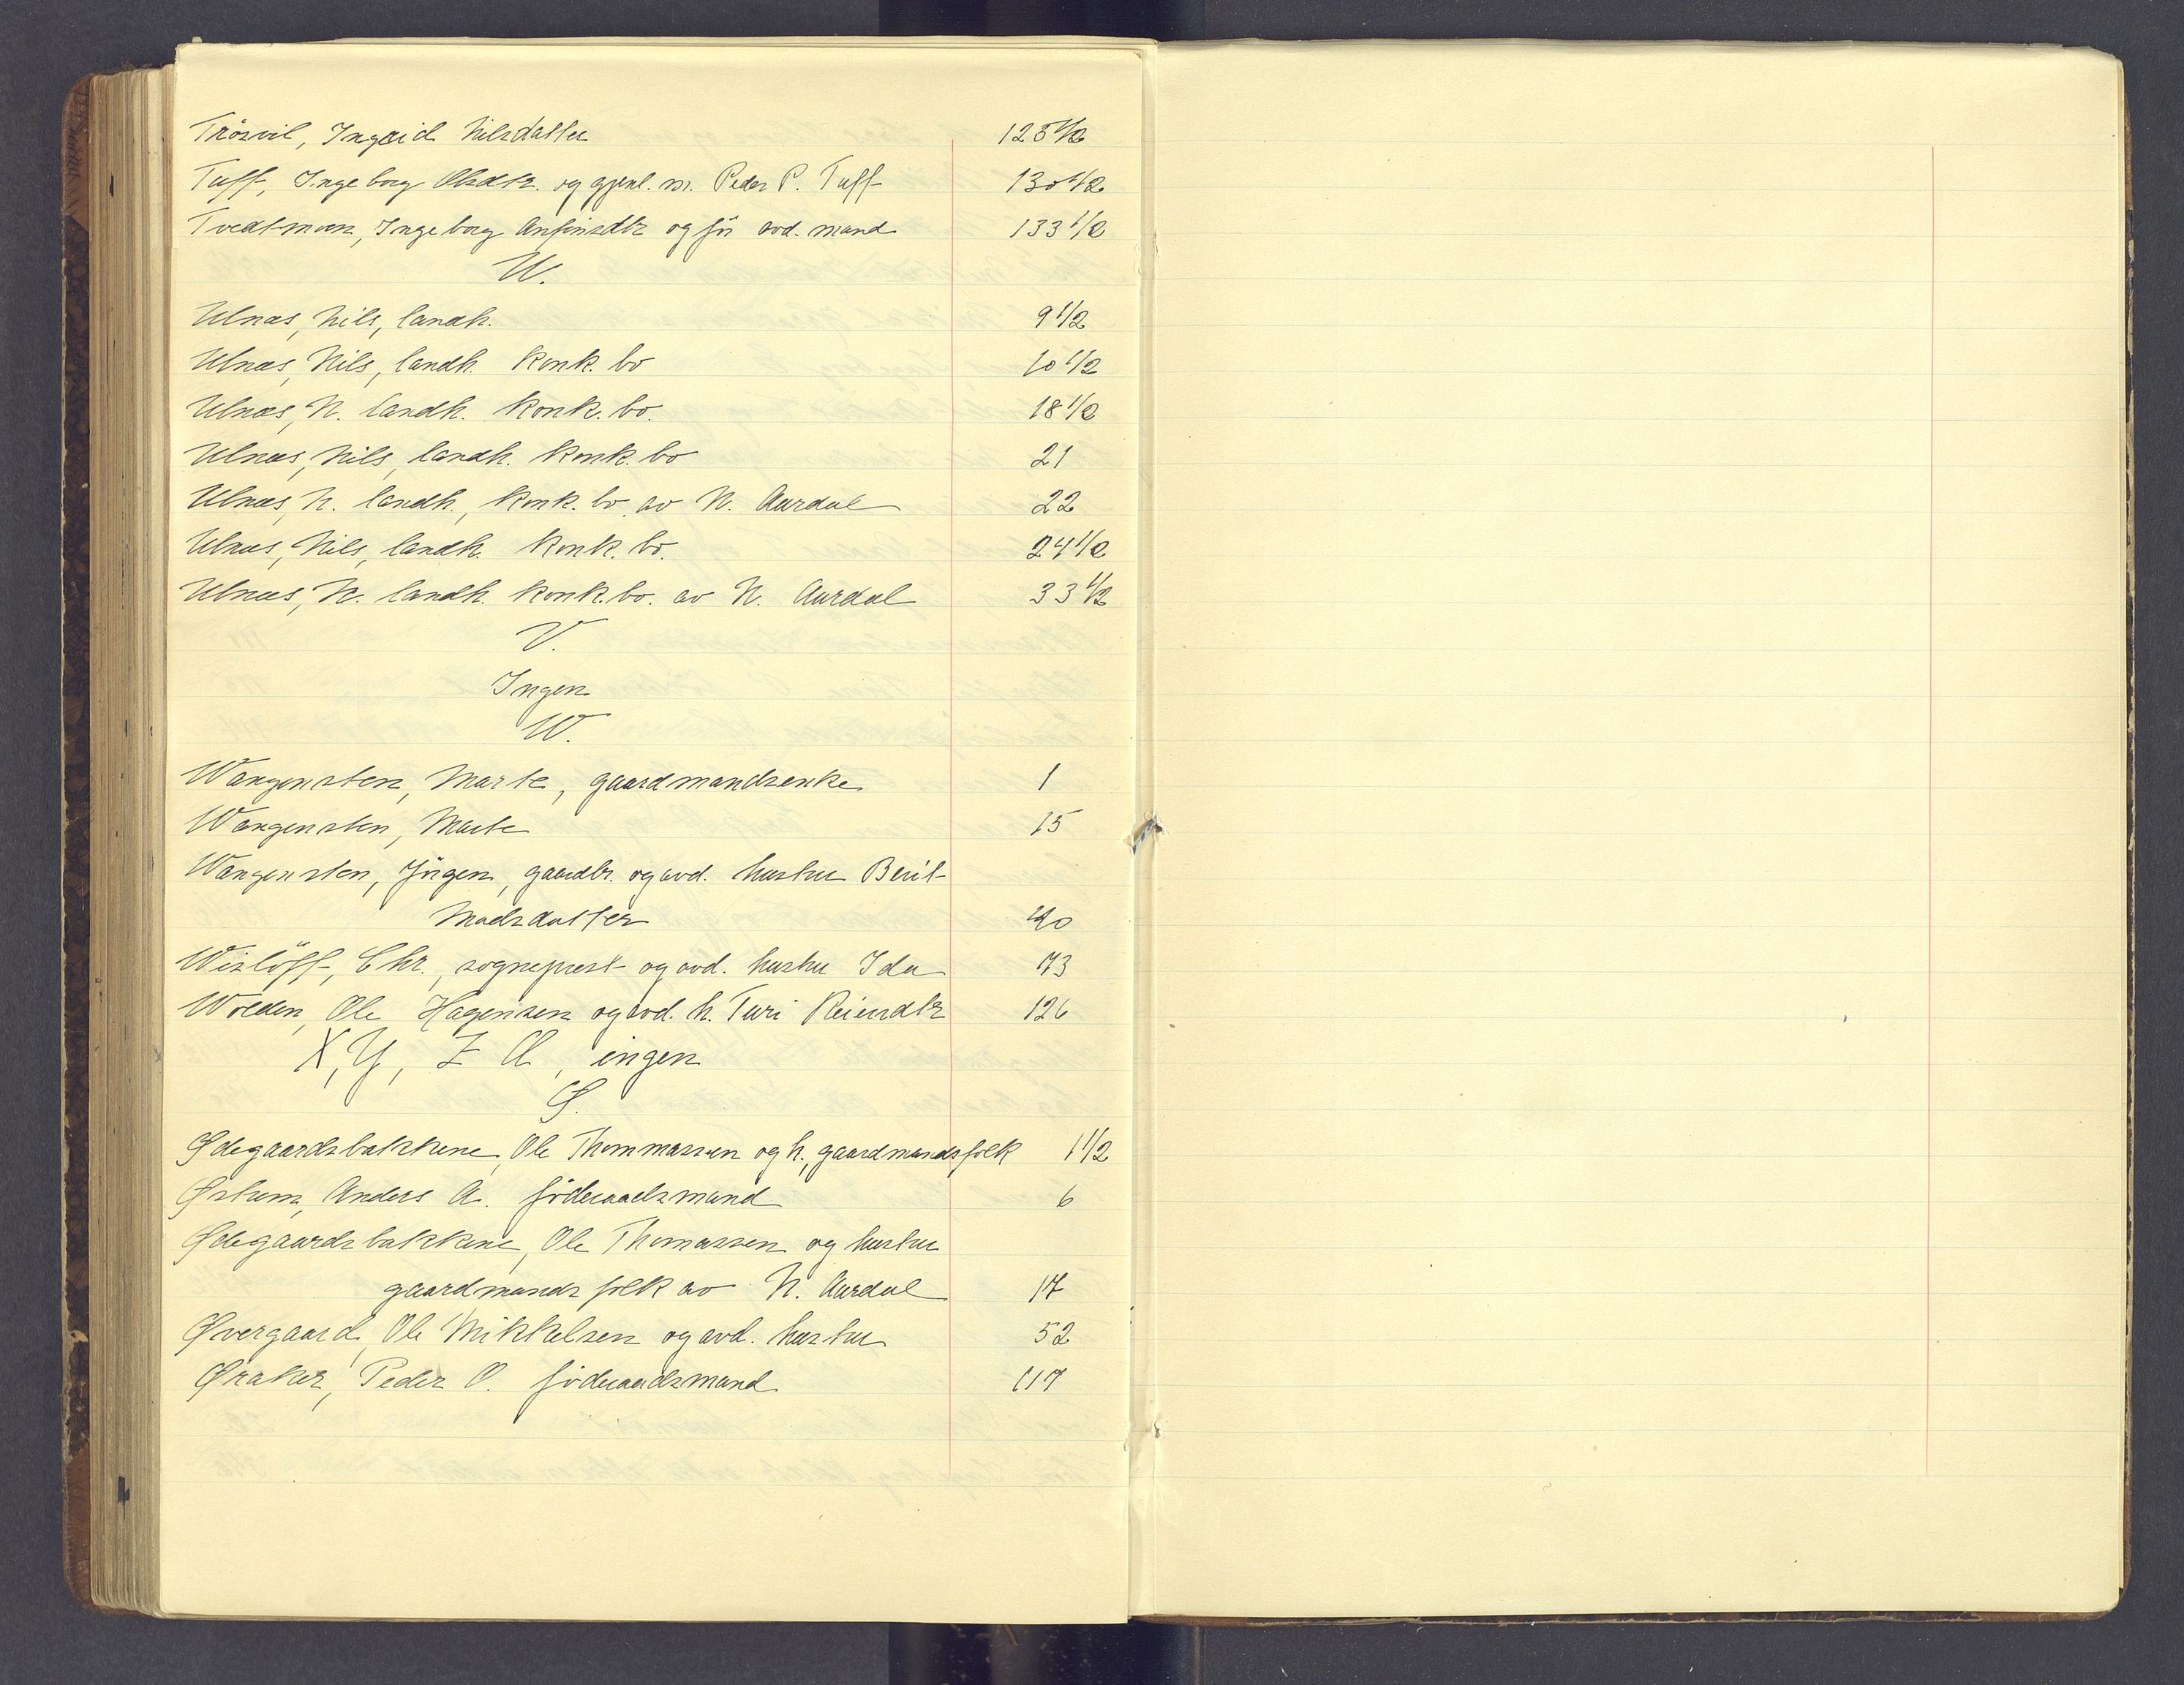 Trösvil, Ingrid Nilsdatter 125 1/2
Tuff, Ingeborg Olsdtr. og gjenl. m. Peder P. Tuff 130 1/2
Tvedtmoen, Ingeborg Anfinsdtr og før avd. mand 133 1/2
U.
Ulnæs, Nils, landh. 9 1/2
Ulnæs, Nils, landh. konk. bo 10 1/2
Ulnæs, N. landh. konk. bo. 18 1/2
Ulnæs, Nils, landh. konk. bo 21
Ulnæs, N. landh., konk. bo. av N. Aurdal 22
Ulnæs, Nils, landh. konk. bo. 24 1/2
Ulnæs, N. landh. konk. bo. av N. Aurdal 33 1/2
V.
Ingen
W.
Wangensten, Marte, gaardmandsenke 1
Wangensten, Marte 15
Wangensten, Jörgen, gaardbr. og avd. hustru Berit
Madsdatter 40
Wislöff, Chr., sogneprest og avd. hustru Ida 73
Wolden, Ole Hagensen og avd. h. Turi Reiersdtr 126
X, Y, Z Æ, ingen
Ø.
Ødegaardsbakkene, Ole Thommassen og h., gaardmandsfolk 1 1/2
Østrem, Anders A. föderaadsmand 6
Ødegaardsbakkene, Ole Thomassen og hustru
gaardmandsfolk av N. Aurdal 17
Øvergaard, Ole Mikkelsen og avd. hustru 52
Øraker, Peder O. föderaadsmand 117